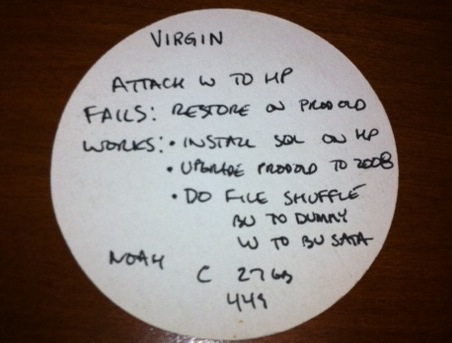 VIRGIN
ATTACH W TO HP
FAILS: RESTORE ON PRODOLD
WORKS: • INSTALL SQL ON HP
• UPGRADE PRODOLD TO 2008
• DO FILE SHUFFLE
BU TO DUMMY
W TO BU SATA
NOAH C 27GB
449